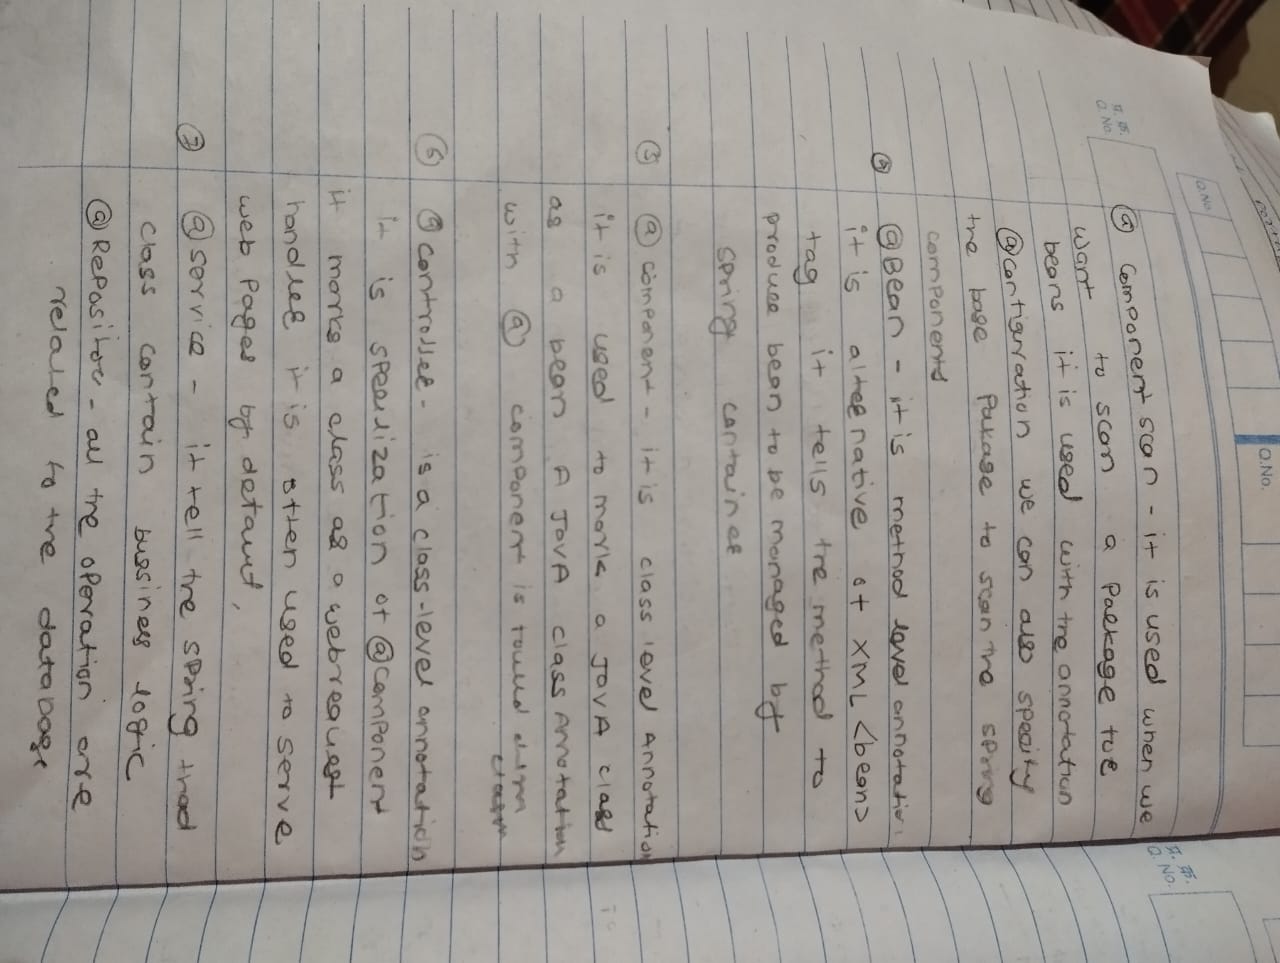 Q.No.
Q.No.
प्र. क्र.
Q. No.
प्र. क्र.
Q. No.
@ component scan - it is used when we
want to scan a Package toe
beans it is used with the annotation
@ contiguration we can also specity
the base Pakage to scan the spring
components
@Bean - it is method level annotation
it is alternative of XML <bean>
tag it tells the method to
produce bean to be managed by
spring container
③ @ component - it is class level Annotation
it is used to mark a JAVA class
as a bean A JAVA class Annotation
with @ component is found
⑥ @ controller - is a class-level annotation
it is of @component
it marks a class as a web request
handler it is often used to serve
web Pages by detaut,
⑦ @ service - it tell the spring
class contain bussiness logic
@ Repositor - all the operation are
related to the database